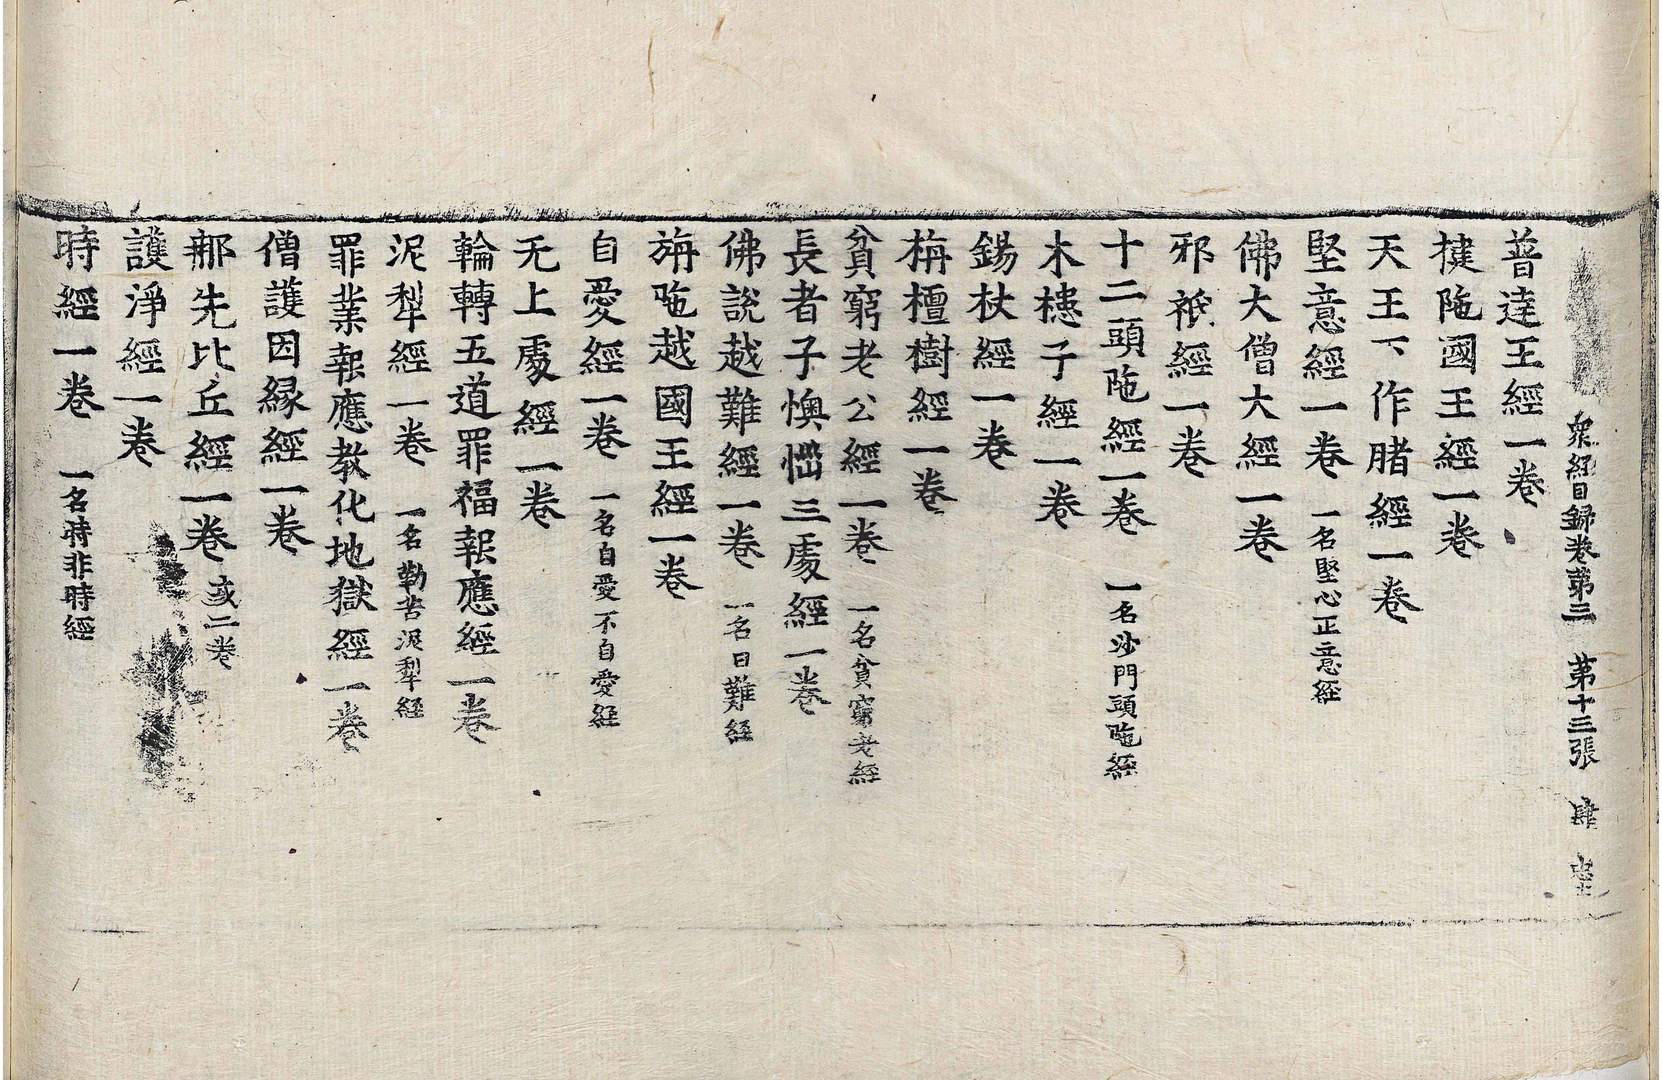 衆経目録卷第三 第十三張 肆 忠
普達王經一卷
揵陁國王經一卷
天王下作賭經一卷
堅意經一卷 一名堅心正意経
佛大僧大經一卷
邪祇經一卷
十二頭陁經一卷 一名沙門頭陁經
木槵子經一卷
錫杖經一卷
栴檀樹經一卷
貧窮老公經一卷 一名貧窮老經
長者子懊惱三處經一卷
佛說越難經一卷 一名日難経
旃陁越國王經一卷
自愛經一卷 一名自愛不自愛経
无上處經一卷
輪轉五道罪福報應經一卷
泥犁經一卷 一名勤苦泥犁経
罪業報應教化地獄經一卷
僧護因緣經一卷
那先比丘經一卷 或二卷
護淨經一卷
時經一卷 一名時非時經